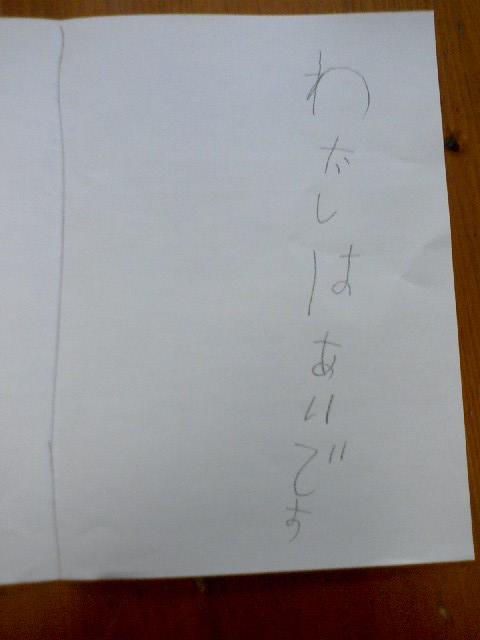 わたしはあいです